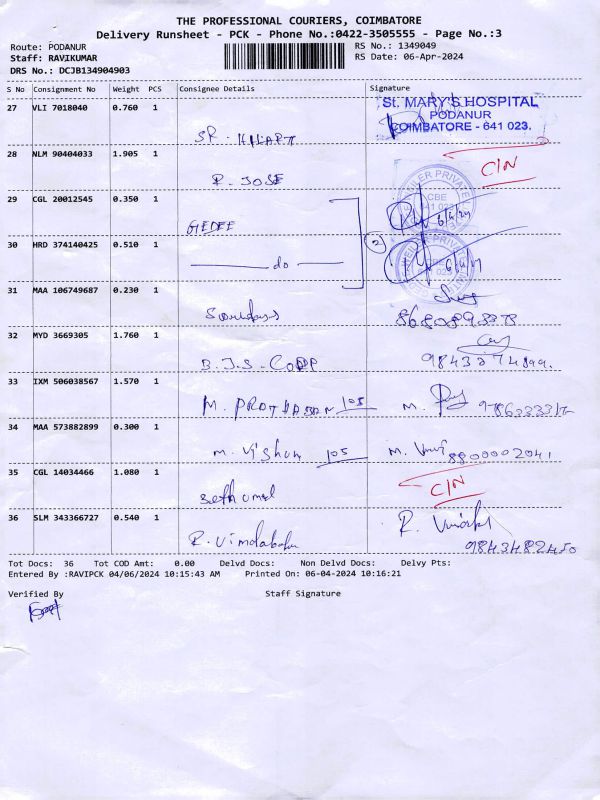 THE PROFESSIONAL COURIERS, COIMBATORE
Delivery Runsheet - PCK - Phone No.:0422-3505555 - Page No.:3
Route: PODANUR
RS No.: 1349049
Staff: RAVIKUMAR
RS Date: 06-Apr-2024
DRS No.: DCJB134904903
S No Consignment No Weight PCS Consignee Details Signature
27 VLI 7018040 0.760 1
St. MARY'S HOSPITAL
PODANUR
COIMBATORE - 641 023.
28 NLM 90404033 1.905 1
R. JOSE C/N
29 CGL 20012545 0.350 1
GEDEE 6/4/24
30 HRD 374140425 0.510 1
do 2
31 MAA 106749687 0.230 1
32 MYD 3669305 1.760 1
B.J.S. CORP
33 IXM 506038567 1.570 1
M. 105 M.
34 MAA 573882899 0.300 1
M. Vishnu 105 M. 8800002041
35 CGL 14034466 1.080 1
C/N
36 SLM 343366727 0.540 1
R. R.
9843482450
Tot Docs: 36 Tot COD Amt: 0.00 Delvd Docs: Non Delvd Docs: Delvy Pts:
Entered By :RAVIPCK 04/06/2024 10:15:43 AM Printed On: 06-04-2024 10:16:21
Verified By Staff Signature